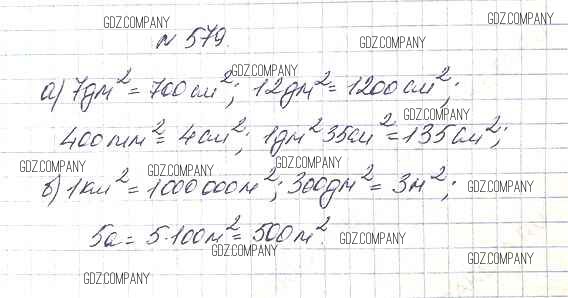 GDZ.COMPANY
GDZ.COMPANY
№ 579.
GDZ.COMPANY
GDZ.COMPANY
а) 7дм² = 700см²; 12дм² = 1200см²;
GDZ.COMPANY
400мм² = 4см²; 1дм² 35см² = 135см²;
GDZ.COMPANY GDZ.COMPANY GDZ.COMPANY
б) 1км² = 1000 000м²; 300дм² = 3м²; GDZ.COMPANY
5а = 5·100м² = 500м². GDZ.COMPANY
GDZ.COMPANY
GDZ.COMPANY
GDZ.COMPANY